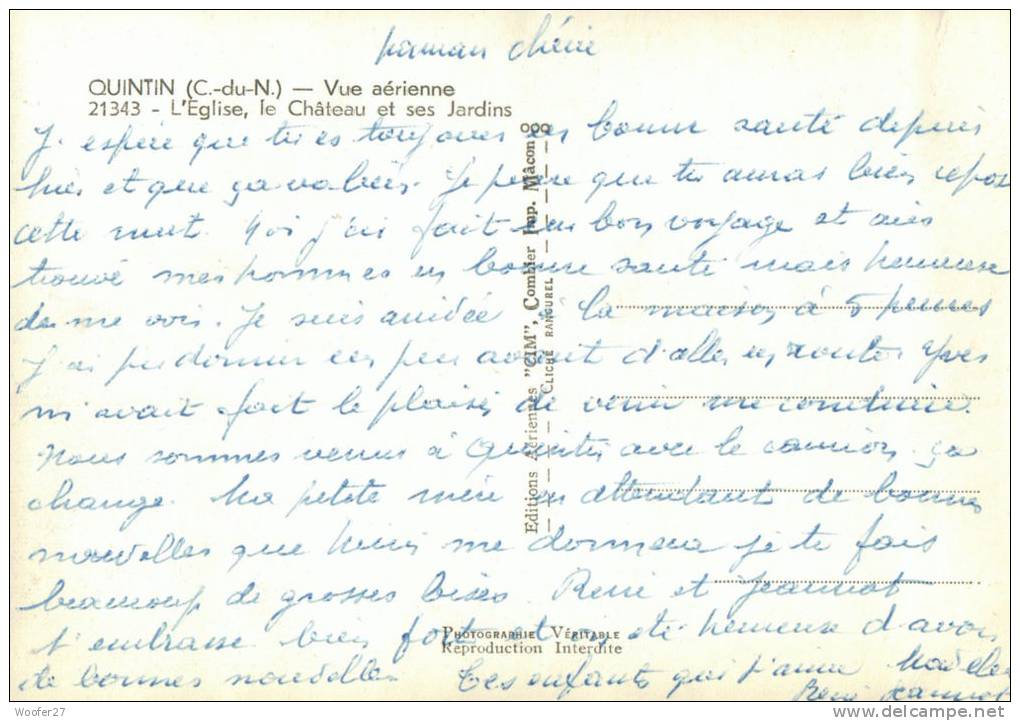 maman chérie
QUINTIN (C.-du-N.) — Vue aérienne
21343 - L'Eglise, le Château et ses Jardins
J'espère que tu es toujours en bonne santé depuis
hier et que ça va bien. Je pense que tu auras bien repos
cette nuit. Moi j'ai fait un bon voyage et ai
trouvé mes hommes en bonne santé mais heureuse
de me voir. Je suis arrivée à la maison à 5 heures
J'ai pu dormir un peu avant d'aller en route Yves
m'avait fait le plaisir de venir me conduire.
Nous sommes venus à Quintin avec le camion ça
change. Ma petite mère en attendant de bonnes
nouvelles que me donnera je te fais
beaucoup de grosses bises. René et Jeannot
t'embrasse bien fort et ai été heureuse d'avoir
de bonnes nouvelles. Tes enfants qui t'aime
René Jeannot
Editions Aériennes "CIM", Combier Imp. Mâcon
CLICHÉ RANCUREL
PHOTOGRAPHIE VÉRITABLE
Reproduction Interdite
Woofer27
www.delcampe.net